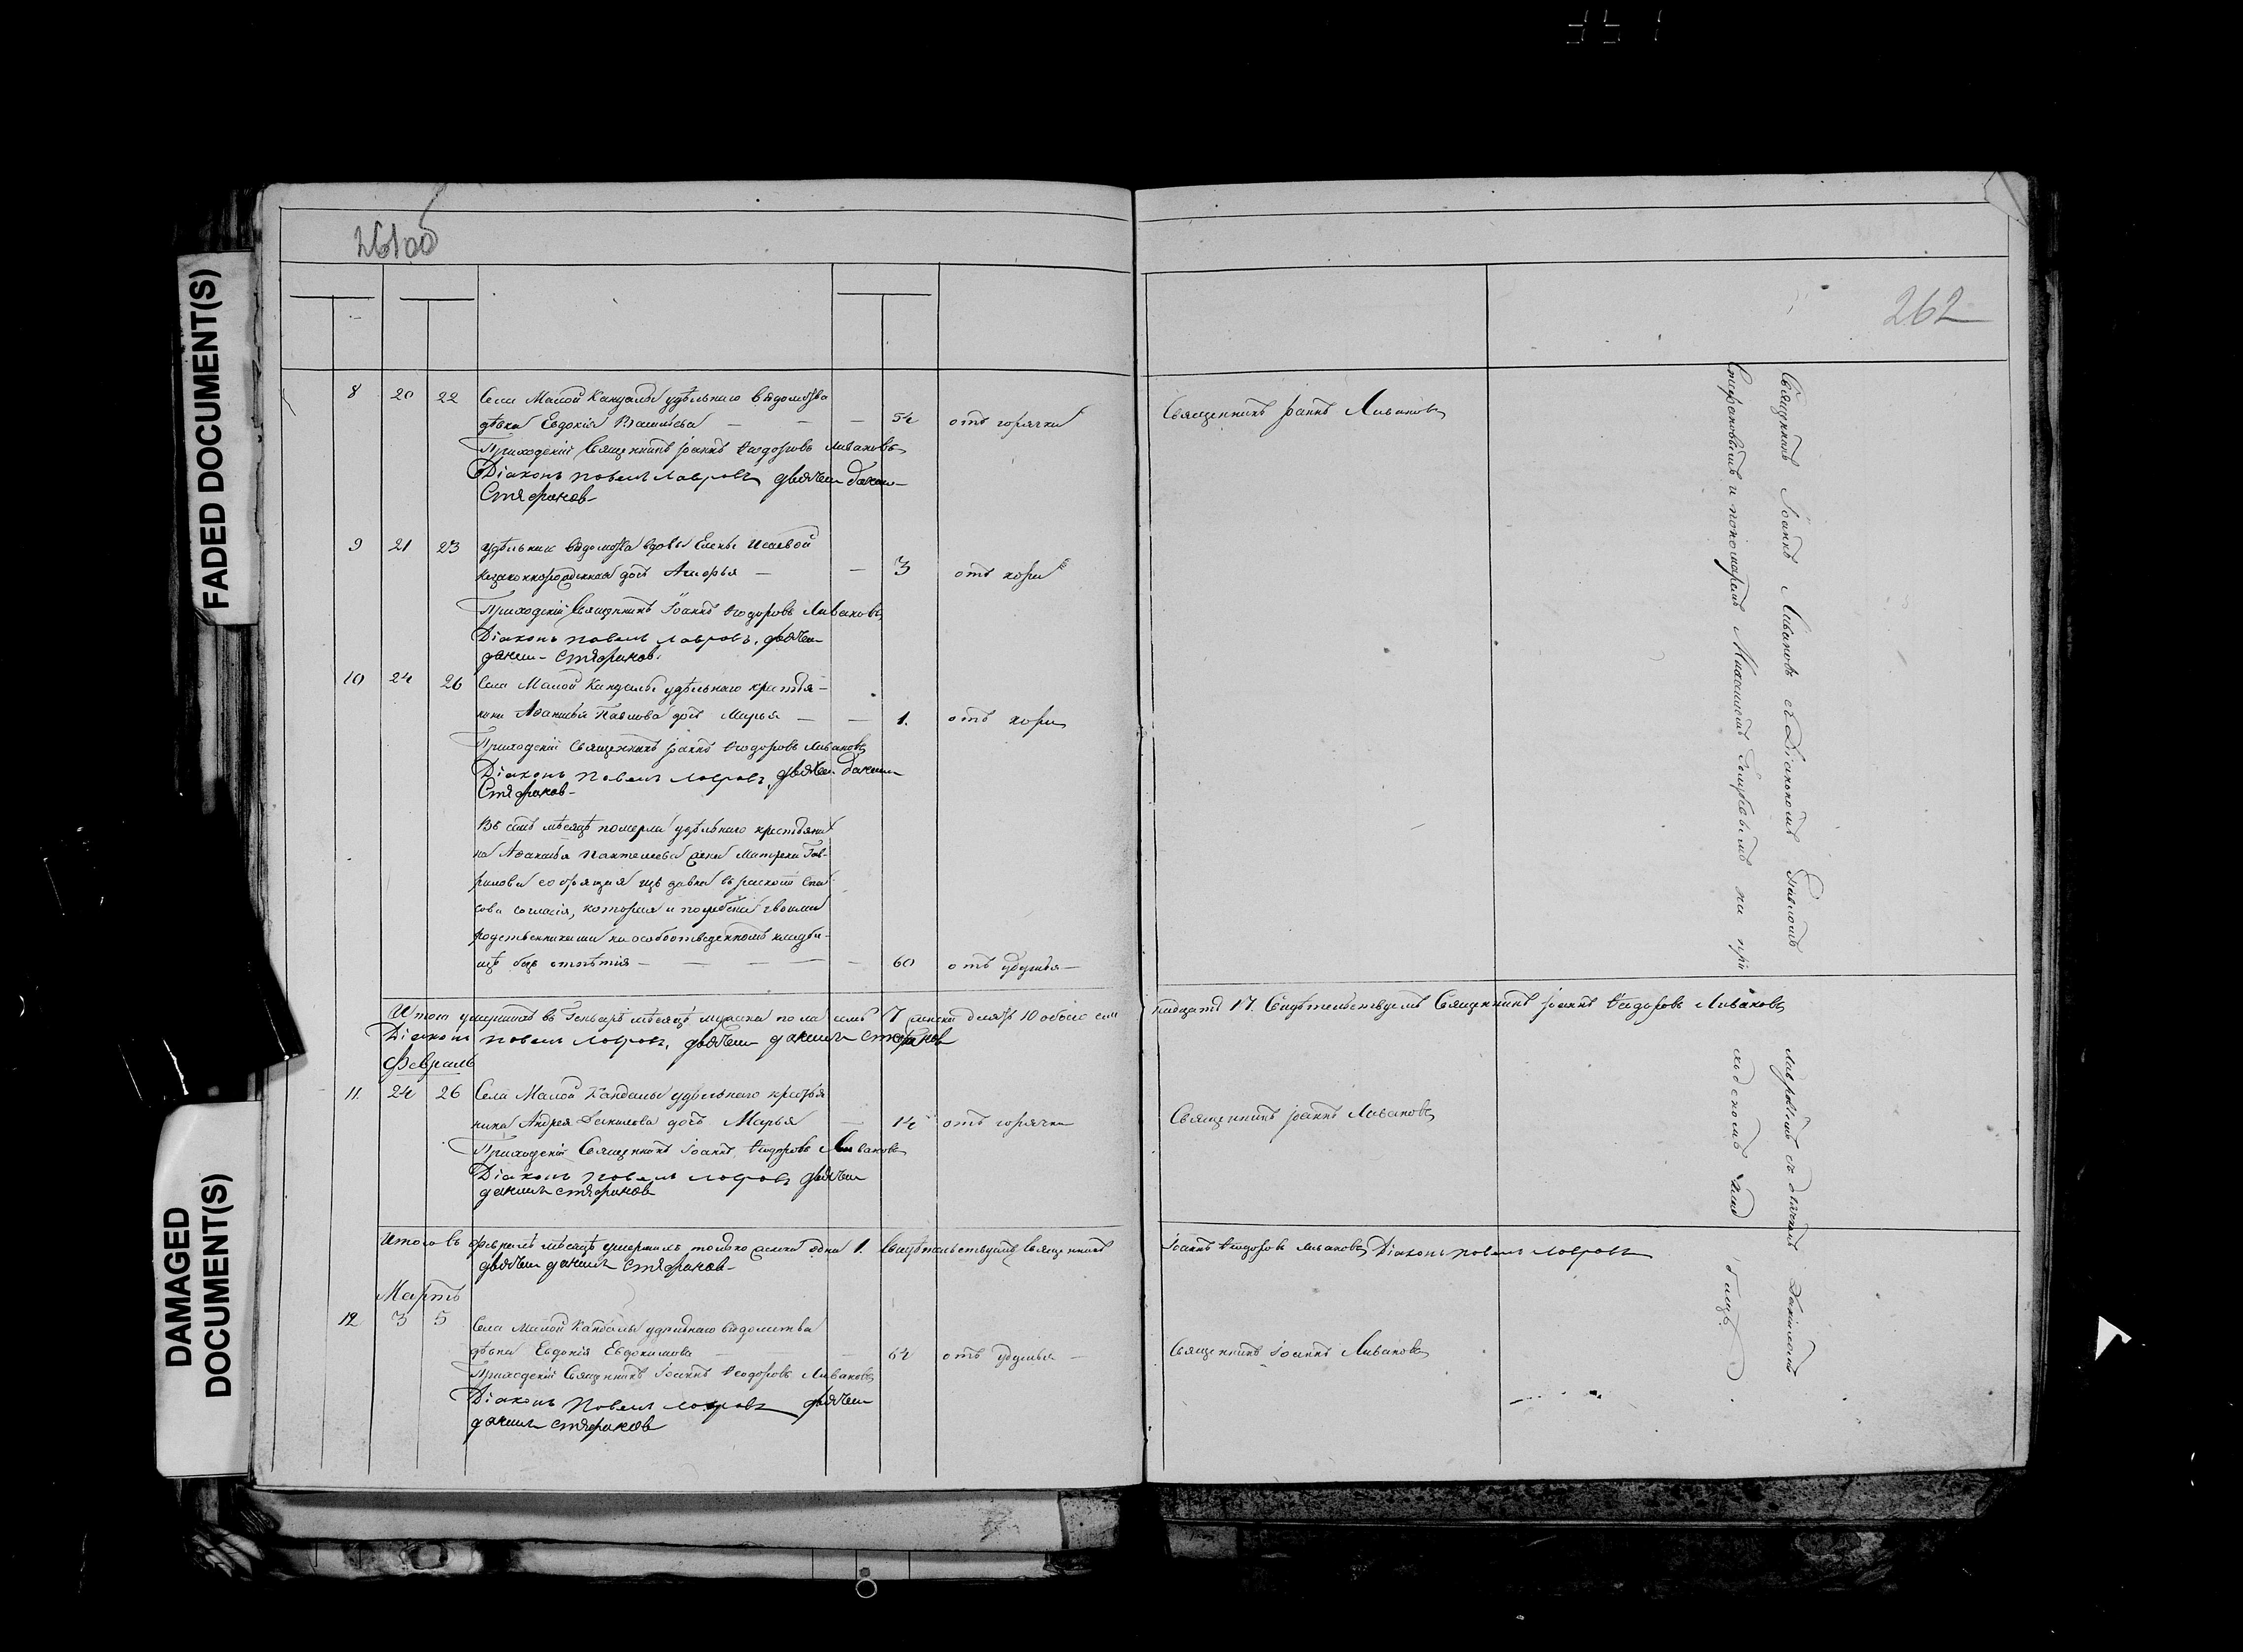 FADED DOCUMENT(S)
DAMAGED
DOCUMENT(S)
261 об
262
8 20 22 Села Малой Кандалы удѣльнаго вѣдомства
дѣвка Евдокія Васильева — — — 54 отъ горячки
Приходскій Священникъ Іоаннъ Ѳеодоровъ Ливановъ
Діаконъ Павелъ Лавровъ дьячекъ Данил
Стефановъ
Священникъ Іоаннъ Ливановъ
9 21 23 удѣльнаго вѣдомства вдовы Елены Исаевой
незаконнорожденная дочь — — 3 отъ кори
Приходскій Священникъ Іоаннъ Ѳеодоровъ Ливановъ
Діаконъ Павелъ Лавровъ, дьячекъ
Данил Стефановъ.
10 24 26 Села Малой Кандалы удѣльнаго крестья-
нина Аѳанасья Павлова дочь Марья — — 1. отъ кори
Приходскій Священникъ Іоаннъ Ѳеодоровъ Ливановъ
Діаконъ Павелъ Лавровъ, дьячекъ Данил
Стефановъ
Въ семъ мѣсяцѣ померла удѣльнаго крестьяни
на Аѳанасья Пантелеева жена Матрена Гав-
рилова состоящая изъ давна въ расколѣ Спа
сова согласія, которая и погребена своими
родственниками на особоотведенномъ кладби-
щѣ безъ отпѣтія — — — — — 60 отъ удушья —
Итого умершихъ въ Генварѣ мѣсяцѣ мужеска пола семь 7 женска десять 10 обоего сем
надцать 17. Свидѣтельствуемъ Священникъ Іоаннъ Ѳеодоровъ Ливановъ
Діаконъ Павелъ Лавровъ, дьячекъ Данилъ Стефановъ
Февраль
11. 24 26 Села Малой Кандалы удѣльнаго крестья
нина Андрея Данилова дочь Марья — 14 отъ горячки
Приходскій Священникъ Іоаннъ Ѳеодоровъ Ливановъ
Діаконъ Павелъ Лавровъ дьячекъ
Данилъ Стефановъ
Священникъ Іоаннъ Ливановъ
Итого въ Февралѣ мѣсяцѣ умершихъ только женска одна 1. Свидѣтельствуемъ Священникъ
Іоаннъ Ѳеодоровъ Ливановъ Діаконъ Павелъ Лавровъ
дьячекъ Данилъ Стефановъ
Мартъ
12 3 5 Села Малой Кандалы удѣльнаго вѣдомства
дѣвка Евдокія Евдокимова — — 64 отъ удушья —
Приходскій Священникъ Іоаннъ Ѳеодоровъ Ливановъ
Діаконъ Павелъ Лавровъ дьячекъ
Данилъ Стефановъ
Священникъ Іоаннъ Ливановъ
Священникъ Іоаннъ Ливановъ съ Діакономъ Павломъ Лавровымъ съ дьячкомъ Даніиломъ
Стефановымъ и пономаремъ на при ходскомъ клад бищѣ.